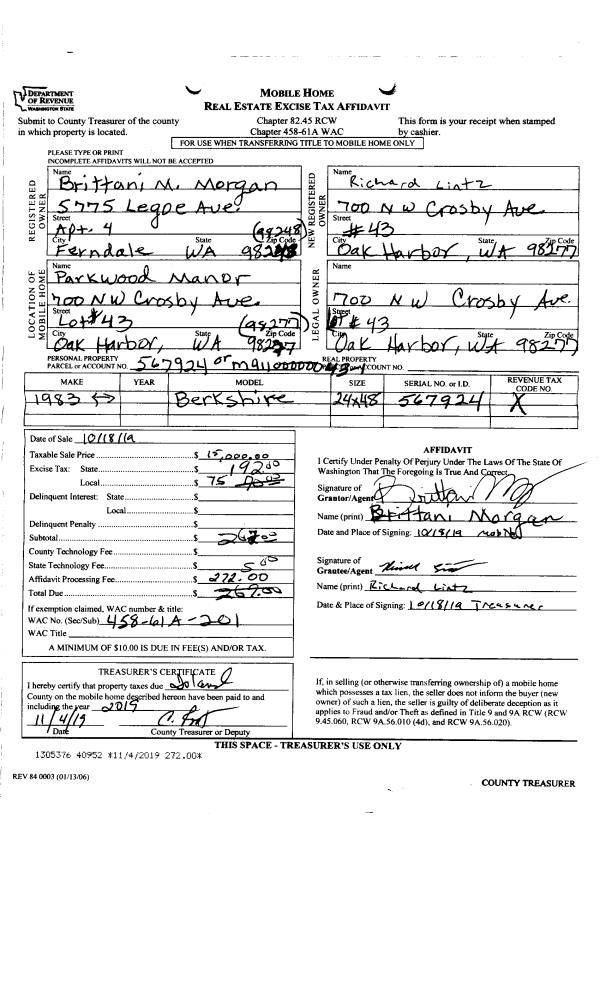 DEPARTMENT
OF REVENUE
WASHINGTON STATE
MOBILE HOME
REAL ESTATE EXCISE TAX AFFIDAVIT
Submit to County Treasurer of the county
in which property is located.
Chapter 82.45 RCW
Chapter 458-61A WAC
This form is your receipt when stamped
by cashier.
FOR USE WHEN TRANSFERRING TITLE TO MOBILE HOME ONLY
PLEASE TYPE OR PRINT
INCOMPLETE AFFIDAVITS WILL NOT BE ACCEPTED
REGISTERED OWNER
Name
Brittani M. Morgan
5775 Legoe Ave.
Street
Apt. 4 (98248)
City State Zip Code
Ferndale WA 98248
NEW REGISTERED OWNER
Name
Richard Lintz
700 NW Crosby Ave
Street
#43
City State Zip Code
Oak Harbor, WA 98277
LOCATION OF MOBILE HOME
Name
Parkwood Manor
700 NW Crosby Ave.
Street
Lot #43 (98277)
City State Zip Code
Oak Harbor, WA 98277
LEGAL OWNER
Name
700 NW Crosby Ave.
Street
#43
City State Zip Code
Oak Harbor, WA 98277
PERSONAL PROPERTY
PARCEL or ACCOUNT NO. 567924 or
REAL PROPERTY
PARCEL or ACCOUNT NO.
MAKE YEAR MODEL SIZE SERIAL NO. or I.D. REVENUE TAX CODE NO.
1983 <-> Berkshire 24x48 567924 X
Date of Sale 10/18/19
Taxable Sale Price $ 15,000.00
Excise Tax: State $ 192.00
Local $ 75
Delinquent Interest: State $
Local $
Delinquent Penalty $
Subtotal $ 267.00
County Technology Fee $
State Technology Fee $ 5.00
Affidavit Processing Fee $ 272.00
Total Due $ 267.00
If exemption claimed, WAC number & title:
WAC No. (Sec/Sub) 458-61A-201
WAC Title
A MINIMUM OF $10.00 IS DUE IN FEE(S) AND/OR TAX.
AFFIDAVIT
I Certify Under Penalty Of Perjury Under The Laws Of The State Of
Washington That The Foregoing Is True And Correct.
Signature of
Grantor/Agent
Name (print) Brittani Morgan
Date and Place of Signing: 10/18/19
Signature of
Grantee/Agent
Name (print) Richard Lintz
Date & Place of Signing: 10/18/19 Treasurer
TREASURER'S CERTIFICATE
I hereby certify that property taxes due Island
County on the mobile home described hereon have been paid to and
including the year 2019
11/4/19
Date County Treasurer or Deputy
If, in selling (or otherwise transferring ownership of) a mobile home
which possesses a tax lien, the seller does not inform the buyer (new
owner) of such a lien, the seller is guilty of deliberate deception as it
applies to Fraud and/or Theft as defined in Title 9 and 9A RCW (RCW
9.45.060, RCW 9A.56.010 (4d), and RCW 9A.56.020).
THIS SPACE - TREASURER'S USE ONLY
1305376 40952 *11/4/2019 272.00*
REV 84 0003 (01/13/06)
COUNTY TREASURER